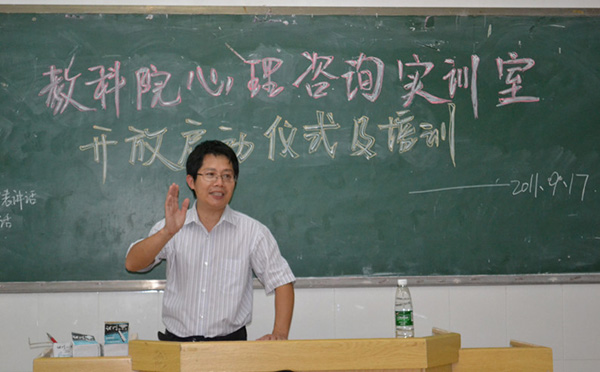 教科院心理咨询实训室
开放启动仪式及培训
2011.9.17.
者讲话